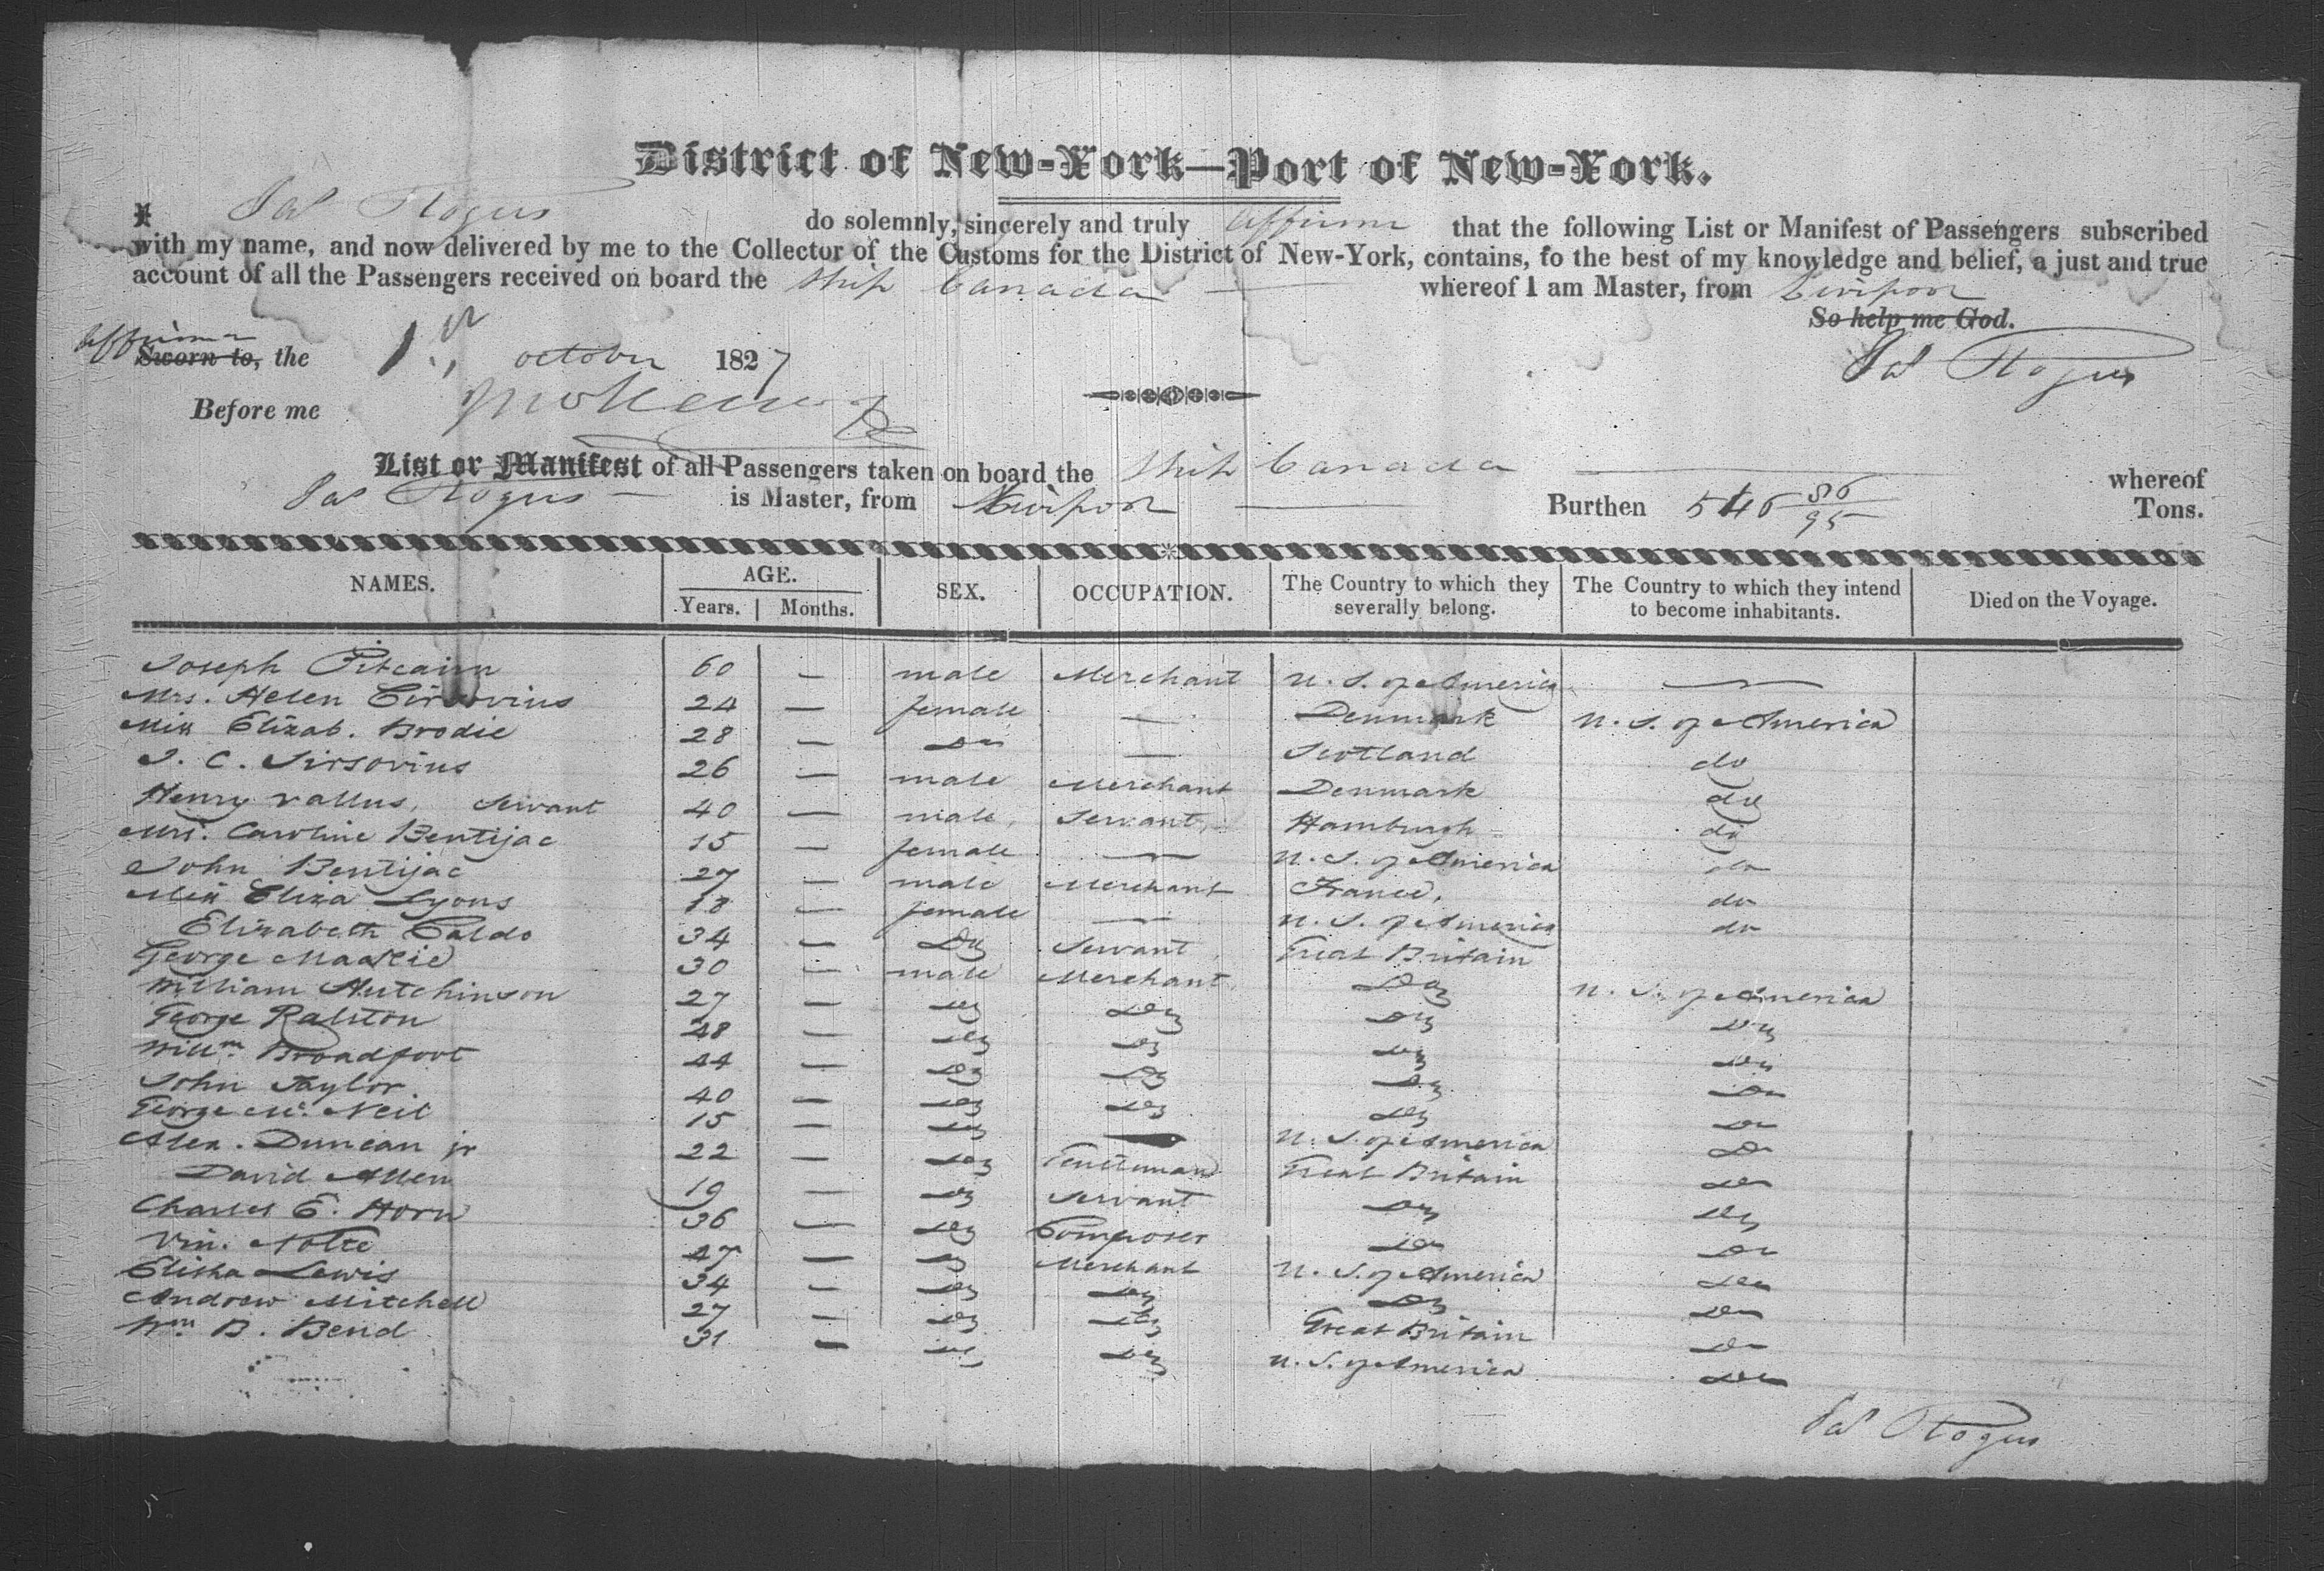 District of New-York—Port of New-York.
I Jas Rogers do solemnly, sincerely and truly affirm that the following List or Manifest of Passengers subscribed
with my name, and now delivered by me to the Collector of the Customs for the District of New-York, contains, to the best of my knowledge and belief, a just and true
account of all the Passengers received on board the Ship Canada whereof I am Master, from Liverpool
So help me God.
affirmed
Sworn to, the 1st october 1827 Jas Rogers
Before me
List or Manifest of all Passengers taken on board the Ship Canada whereof
Jas Rogers is Master, from Liverpool Burthen 546 86/95 Tons.
NAMES. AGE. SEX. OCCUPATION. The Country to which they severally belong. The Country to which they intend to become inhabitants. Died on the Voyage.
Years. Months.
Joseph Pitcairn 60 — male Merchant U. S. of America —
Mrs. Helen 24 — female — Denmark U. S. of America
Miss Elizab. Brodie 28 — Do — Scotland do
J. C. Sirsovius 26 — male Merchant Denmark do
Henry Vallus, Servant 40 — male, Servant, Hamburgh do
Mrs. Caroline Bentijac 15 — female — U. S. of America do
John Bentijac 27 — male Merchant France, do
Miss Eliza Lyons 18 — female — U. S. of America do
Elizabeth Caldo 34 — Do Servant Great Britain
George 30 — male Merchant Do U. S. of America
William Hutchinson 27 — Do Do Do Do
George Ralston 48 — Do Do Do Do
Willm. Broadfoot 44 — Do Do Do Do
John Taylor 40 — Do Do Do Do
George Mc. Neil 15 — Do — U. S. of America Do
Alex. Duncan jr 22 — Do Gentleman Great Britain Do
David Allen 19 — Do Servant Do Do
Charles E. Horn 36 — Do Composer Do Do
Vin. Nolte 47 — Do Merchant U. S. of America Do
Elisha Lewis 34 — Do Do Do Do
Andrew Mitchell 27 — Do Do Great Britain Do
Wm. B. Bend 31 — Do Do U. S. of America Do
Jas Rogers